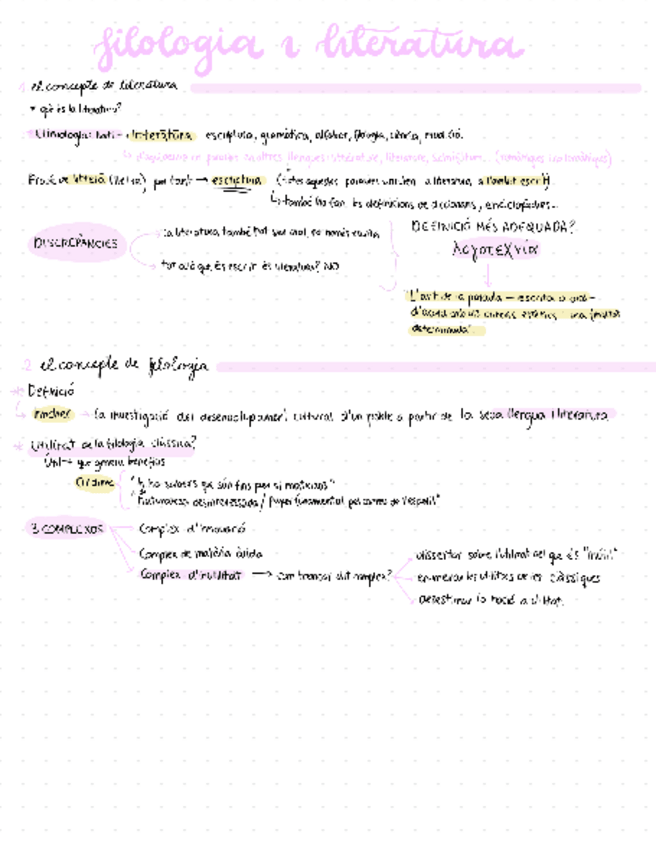 filologia i literatura
1 el concepte de literatura
* què és la literatura?
Etimologia: llatí - litterātūra escriptura, gramàtica, alfabet, filologia, ciència, erudició.
paraules en altres llengües: littérature, literature, (romàniques i no romàniques)
Prové de litterā (lletra) per tant → escriptura (totes aquestes paraules la literatura, a l'àmbit escrit)
també ho fan les definicions de diccionaris, enciclopèdies...
DISCREPÀNCIES
la literatura també pot ser oral, no només escrita
tot allò que és escrit és literatura? NO
DEFINICIÓ MÉS ADEQUADA?
λογοτεχνία
"L'art de la paraula — escrita o oral —
d'acord amb uns criteris estètics i una finalitat
determinada"
2 el concepte de filologia
* Definició
→ la investigació del desenvolupament cultural d'un poble a partir de la seva llengua i literatura
* Utilitat de la filologia clàssica?
Útil → que genera beneficis
Ordine
"hi ha sabers que són fins per si mateixos"
"Naturalesa desinteressada / Paper fonamental pel conreu de l'esperit"
3 COMPLEXOS
Complex d'innovació
Complex de matèria àrida
Complex d'inutilitat → com trencar dit complex?
dissertar sobre l'utilitat del que és "inútil"
enumerar les utilitats de les clàssiques
desestimar la noció d'utilitat